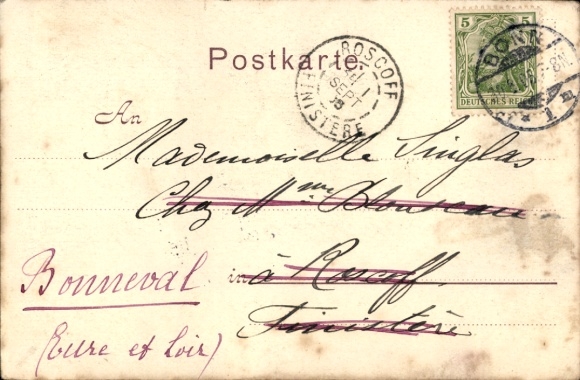 Postkarte.
5 5
DEUTSCHES REICH
BONN
1
ROSCOFF
SEPT
FINISTÈRE
An
Mademoiselle Singlas
Chez Mme
Bonneval
in à Roscoff
Finistère
(Eure et Loir)